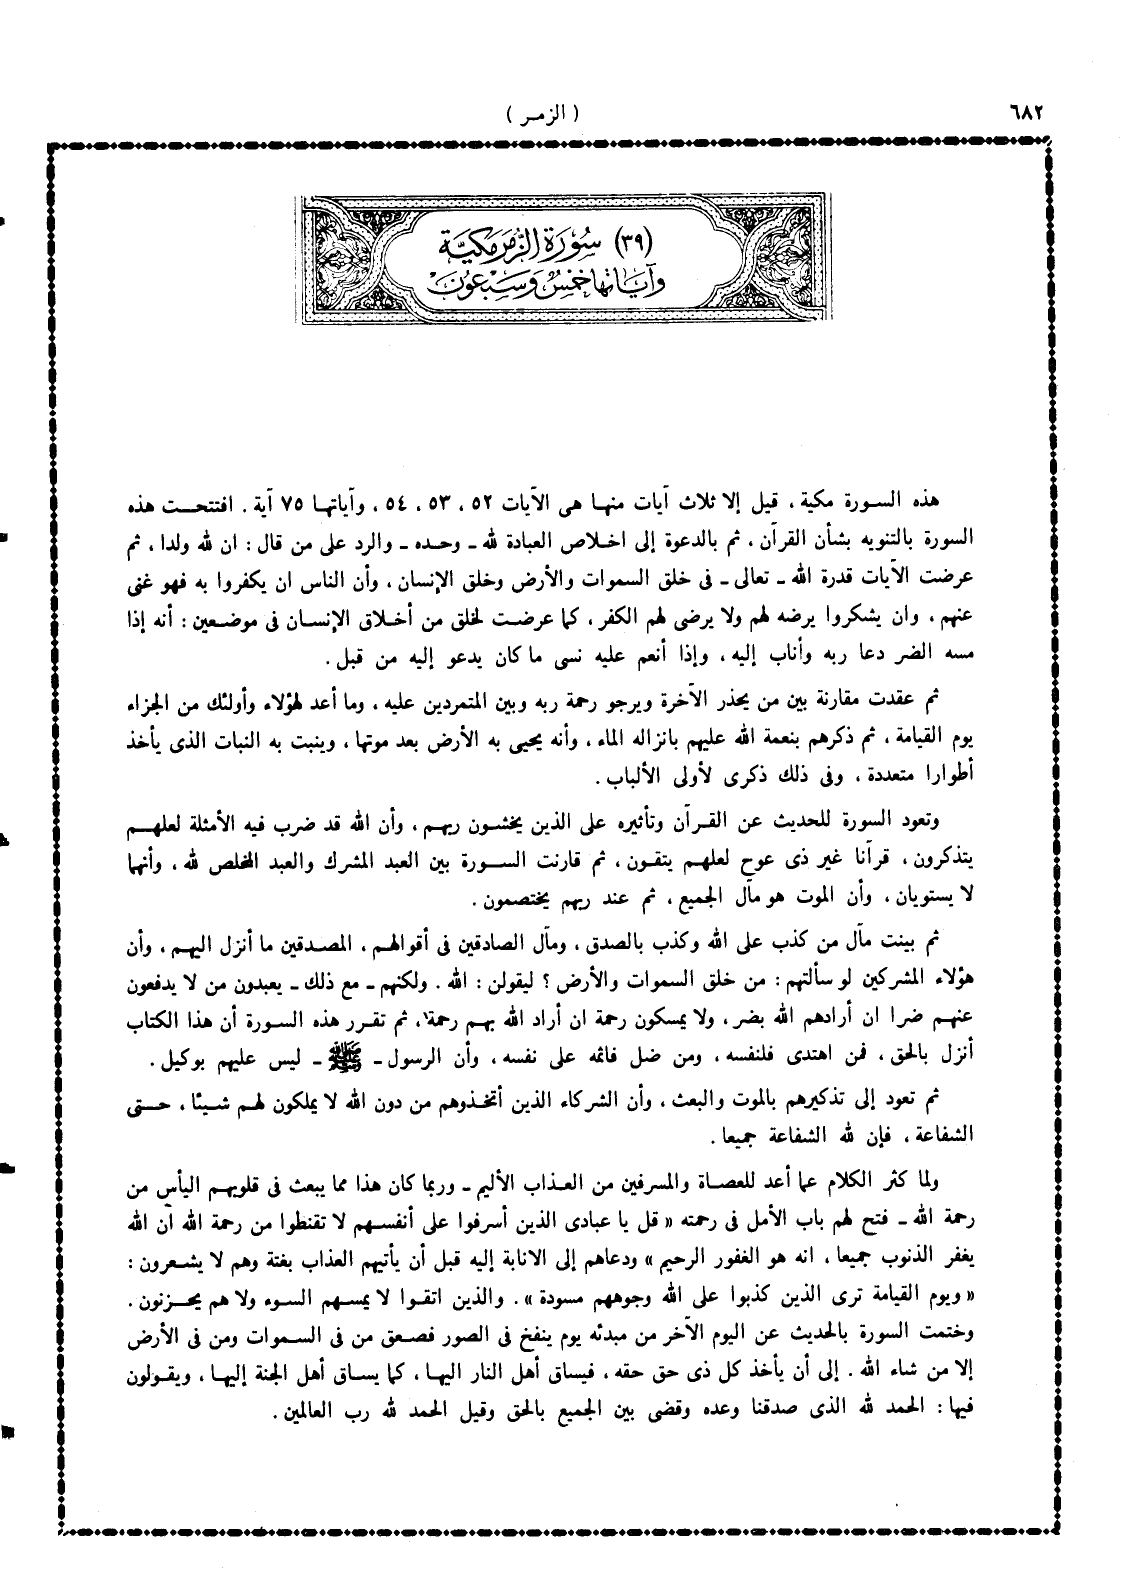 ٦٨٢
( الزمـر )
(٣٩) سُورَة الزُّمَر مَكيَّة
وَآيَاتهَا خَمْسٌ وَسَبْعُونَ
هذه السـورة مكية ، قيل إلا ثلاث آيات منهـا هى الآيات ٥٢ ، ٥٣ ، ٥٤ ، وآياتهـا ٧٥ آية . افتتحـت هذه
السورة بالتنويه بشأن القرآن ، ثم بالدعوة إلى اخـلاص العبادة لله ـ وحـده ـ والرد على من قال : ان لله ولدا ، ثم
عرضت الآيات قدرة الله ـ تعالى ـ فى خلق السموات والأرض وخلق الإنسان ، وأن الناس ان يكفروا به فهو غنى
عنهم ، وان يشكروا يرضه لهم ولا يرضى لهم الكفر ، كما عرضـت لخلق من أخـلاق الإنسـان فى موضـعين : أنه إذا
مسه الضر دعا ربه وأناب إليه ، وإذا أنعم عليه نسى ما كان يدعو إليه من قبل .
ثم عقدت مقارنة بين من يحذر الآخرة ويرجو رحمة ربه وبين المتمردين عليه ، وما أعد لهؤلاء وأولئك من الجزاء
يوم القيامة ، ثم ذكرهم بنعمة الله عليهم بانزاله الماء ، وأنه يحيى به الأرض بعد موتها ، وينبت به النبات الذى يأخذ
أطوارا متعددة ، وفى ذلك ذكرى لأولى الألباب .
وتعود السورة للحديث عن القـرآن وتأثيره على الذين يخشـون ربهـم ، وأن الله قد ضرب فيه الأمثلة لعلهـم
يتذكرون ، قرآنا غير ذى عوج لعلهـم يتقون ، ثم قارنت السـورة بين العبد المشرك والعبد المخلص لله ، وأنهما
لا يستويان ، وأن الموت هو مآل الجميع ، ثم عند ربهم يختصمون .
ثم بينت مآل من كذب على الله وكذب بالصدق ، ومآل الصادقين فى أقوالهـم ، المصدقين ما أنزل اليهـم ، وأن
هؤلاء المشركين لو سألتهم : من خلق السموات والأرض ؟ ليقولن : الله . ولكنهم ـ مع ذلك ـ يعبدون من لا يدفعون
عنهـم ضرا ان أرادهم الله بضر ، ولا يمسكون رحمة ان أراد الله بهـم رحمة ، ثم تقرر هذه السـورة أن هذا الكتاب
أنزل بالحق ، فمن اهتدى فلنفسه ، ومن ضل فائمه على نفسه ، وأن الرسول ـ ﷺ ـ ليس عليهم بوكيل .
ثم تعود إلى تذكيرهم بالموت والبعث ، وأن الشركاء الذين أتخـذوهم من دون الله لا يملكون لهـم شـيئا ، حـتى
الشفاعة ، فإن لله الشفاعة جميعا .
ولما كثر الكلام عما أعد للعصـاة والمسرفين من العـذاب الأليم ـ وربما كان هذا مما يبعث فى قلوبهـم اليأس من
رحمة الله ـ فتح لهم باب الأمل فى رحمته « قل يا عبادى الذين أسرفوا على أنفسـهم لا تقنطوا من رحمة الله آن الله
يغفر الذنوب جميعا ، انه هو الغفور الرحيم » ودعاهم إلى الانابة إليه قبل أن يأتيهم العذاب بغتة وهم لا يشـعرون :
« ويوم القيامة ترى الذين كذبوا على الله وجوههم مسودة » . والذين اتقـوا لا يمسـهم السوء ولا هم يحـزنون .
وختمت السورة بالحديث عن اليوم الآخر من مبدئه يوم ينفخ فى الصور فصعق من فى السموات ومن فى الأرض
إلا من شاء الله . إلى أن يأخذ كل ذى حق حقه ، فيساق أهل النار اليهـا ، كما يسـاق أهل الجنة إليهـا ، ويقـولون
فيها : الحمد لله الذى صدقنا وعده وقضى بين الجميع بالحق وقيل الحمد لله رب العالمين .